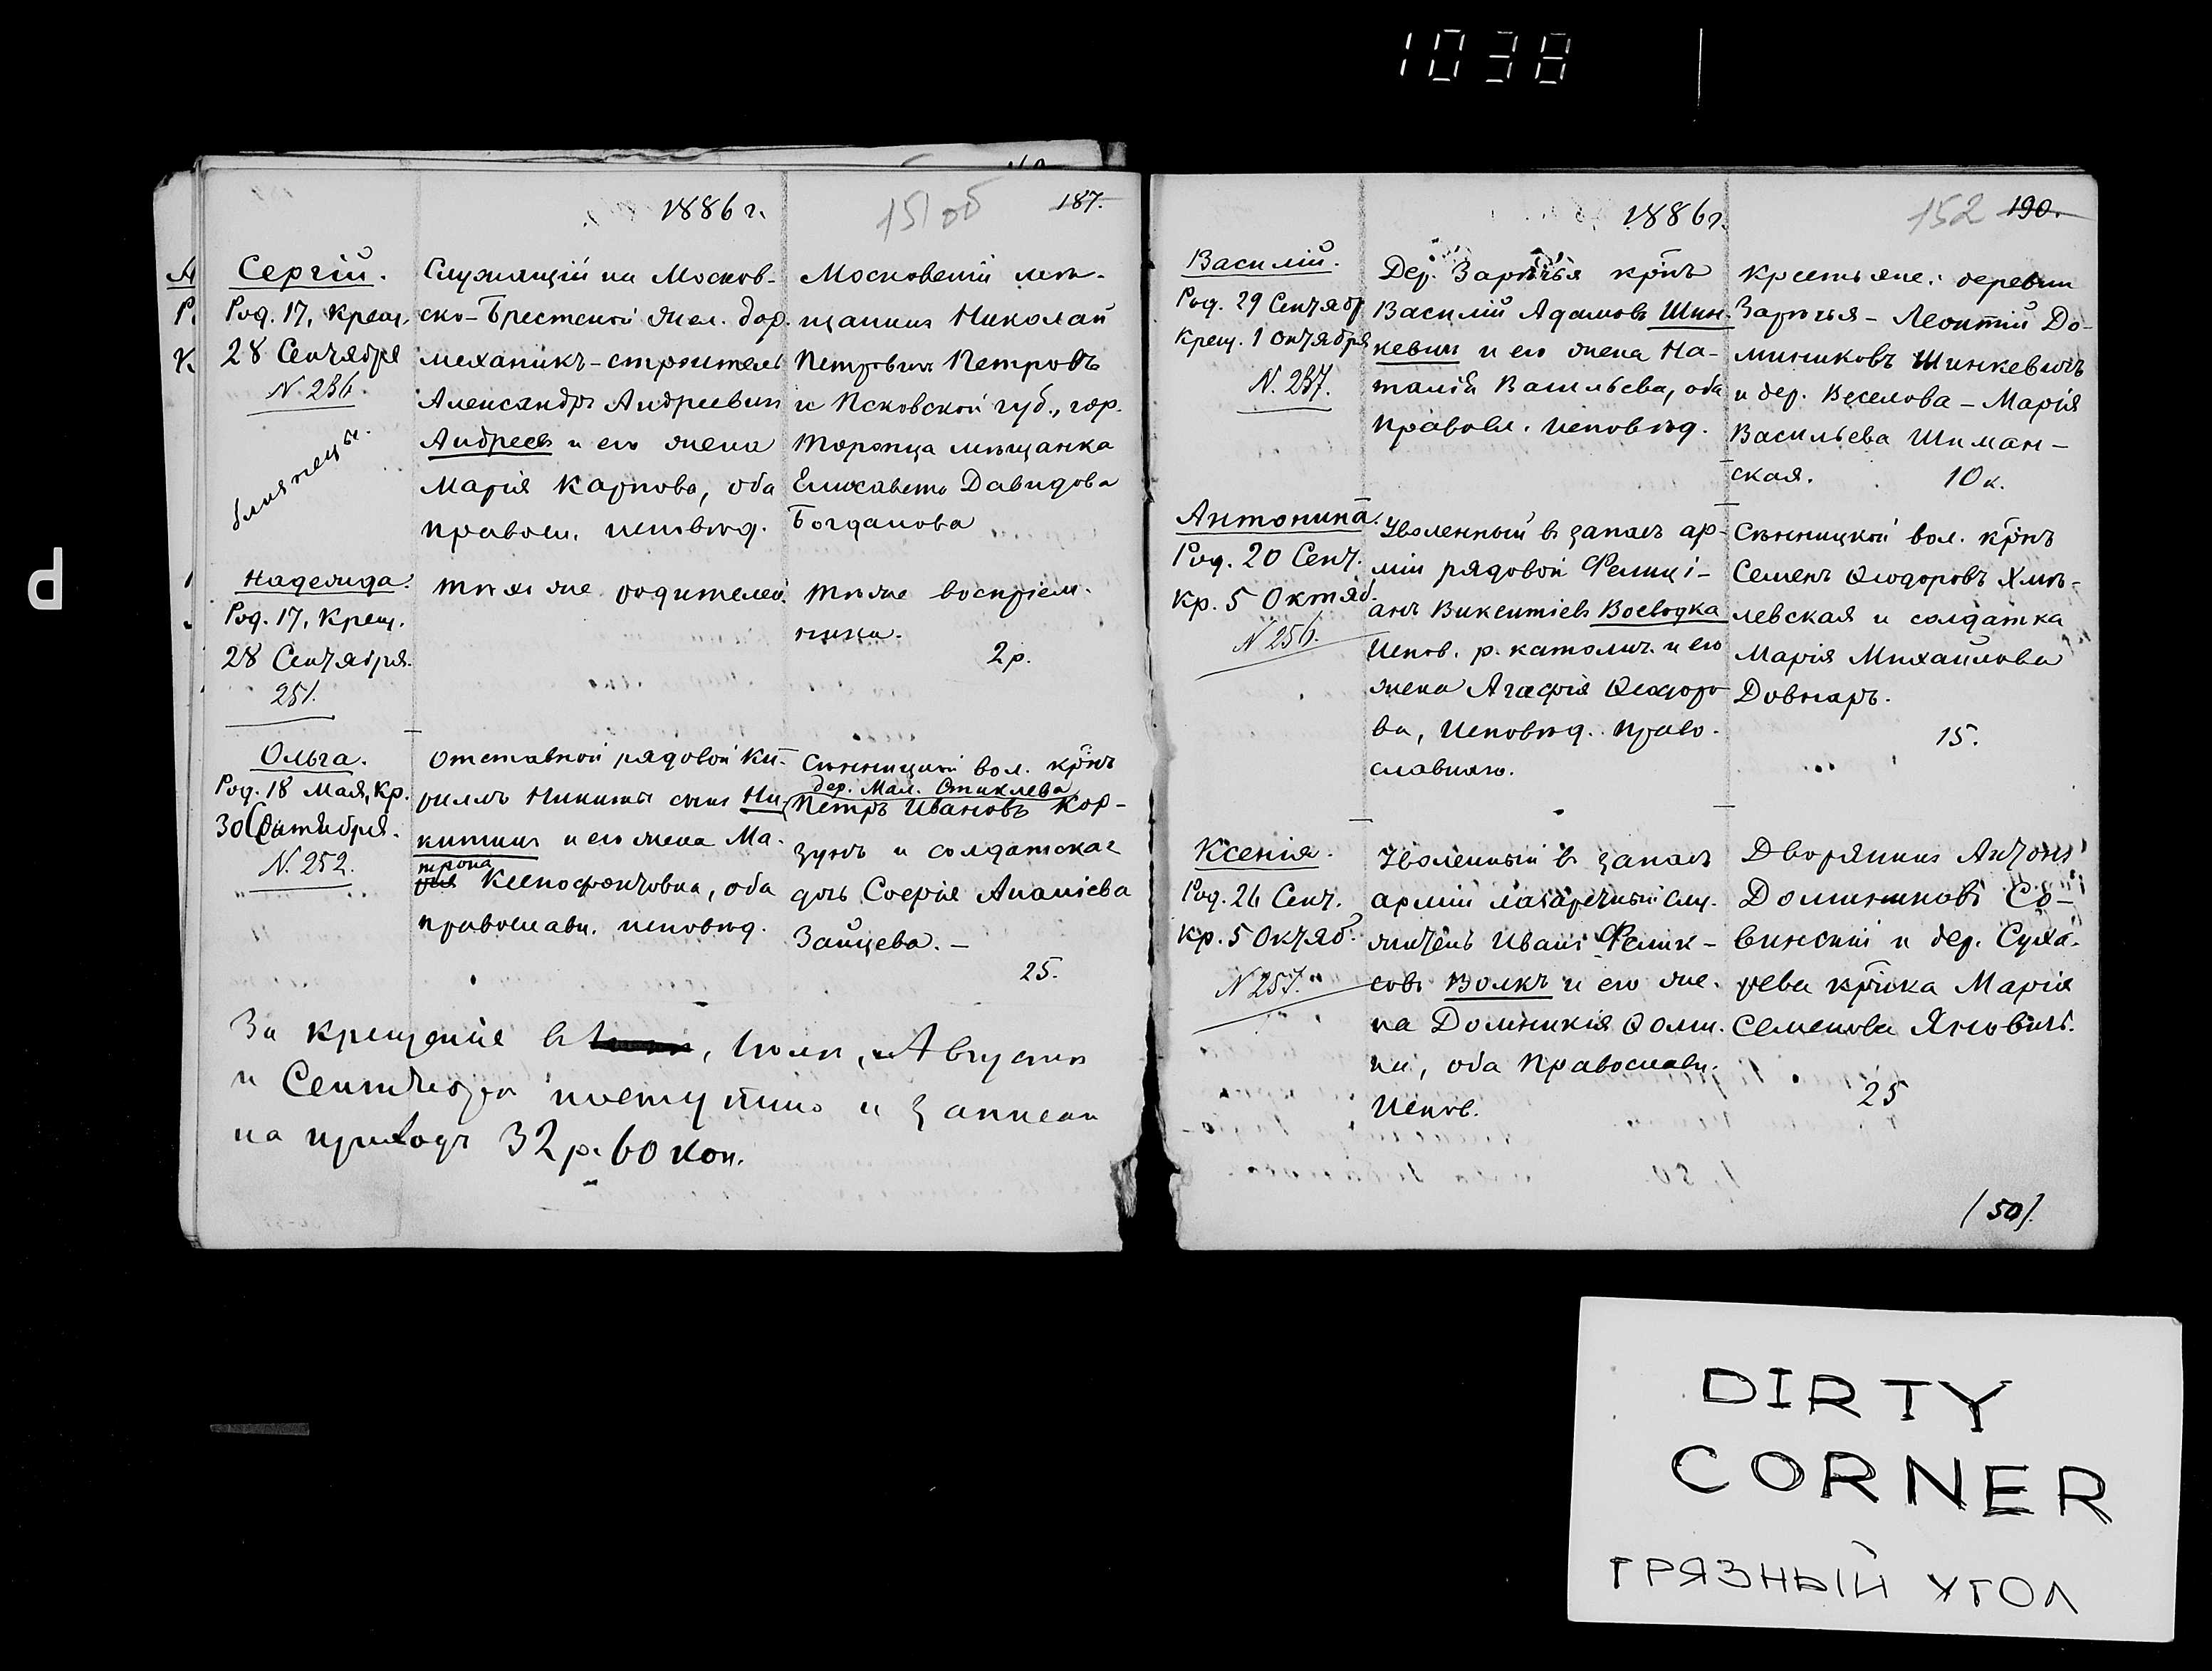 1038
1886 г.
151 об
187.
Сергій.
Род. 17, Крещ.
28 Сентября
N. 236.
близнецы.
Служащій на Москов-
ско-Брестской жел. дор.
механикъ-строитель
Александръ Андреевичъ
Андреевъ и его жена
Марія Карпова, оба
правосл. исповѣд.
Московскій мѣ-
щанинъ Николай
Петровичъ Петровъ
и Псковской губ., гор.
Торопца мѣщанка
Елисавета Давидова
Богданова
Надежда.
Род. 17, Крещ.
28 Сентября.
251.
Тѣхъ же родителей.
Тѣ же воспріем-
ники.
2 р.
Ольга.
Род. 18 Мая, Кр.
30 Сентября.
N. 252.
Отставной рядовой Ки-
риллъ Никиты сынъ Ни-
китинъ и его жена Ма-
трона
Ксенофонтовна, оба
православн. исповѣд.
Сѣнницкой вол. крнъ
дер. Мал. Стиклева
Петръ Ивановъ Кор-
зунъ и солдатская
дочь Софія Ананіева
Зайцева. —
25.
За крещеніе въ, Іюлѣ, Августѣ
и Сентябрѣ поступило и записан
на приходъ 32 р. 60 коп.
1886 г.
152 190.
Василій.
Род. 29 Сентябр
Крещ. 1 Октября
N. 237.
Дер. Зарѣчья крнъ
Василій Адамовъ Шин-
кевичъ и его жена На-
талія Васильева, оба
правосл. исповѣд.
Крестьяне: деревни
Зарѣчья - Леонтій До-
миниковъ Шинкевичъ
и дер. Веселова - Марія
Васильева Шиман-
ская.
10 к.
Антонина.
Род. 20 Сент.
Кр. 5 Октяб.
N 256.
Уволенный въ запасъ ар-
міи рядовой Фелиці-
анъ Викентіевъ Воеводка
Испов. р. католич. и его
жена Агафія Ѳеодоро
ва, Исповѣд. Право-
славнаго.
Сѣнницкой вол. крнъ
Семенъ Ѳеодоровъ Хмѣ-
левская и солдатка
Марія Михайлова
Довнаръ.
15.
Ксенія.
Род. 26 Сент.
Кр. 5 Октяб.
N 257.
Уволенный въ запасъ
арміи лазаретный слу-
житель Иванъ Фелик-
совъ Волкъ и его же-
на Доминикія Ѳоми-
на, оба Православн.
Испов.
Дворянинъ Антонъ
Доминиковъ Со-
винскій и дер. Суха-
рева крнка Марія
Семенова Яновичъ.
25
(50).
DIRTY
CORNER
ГРЯЗНЫЙ УГОЛ